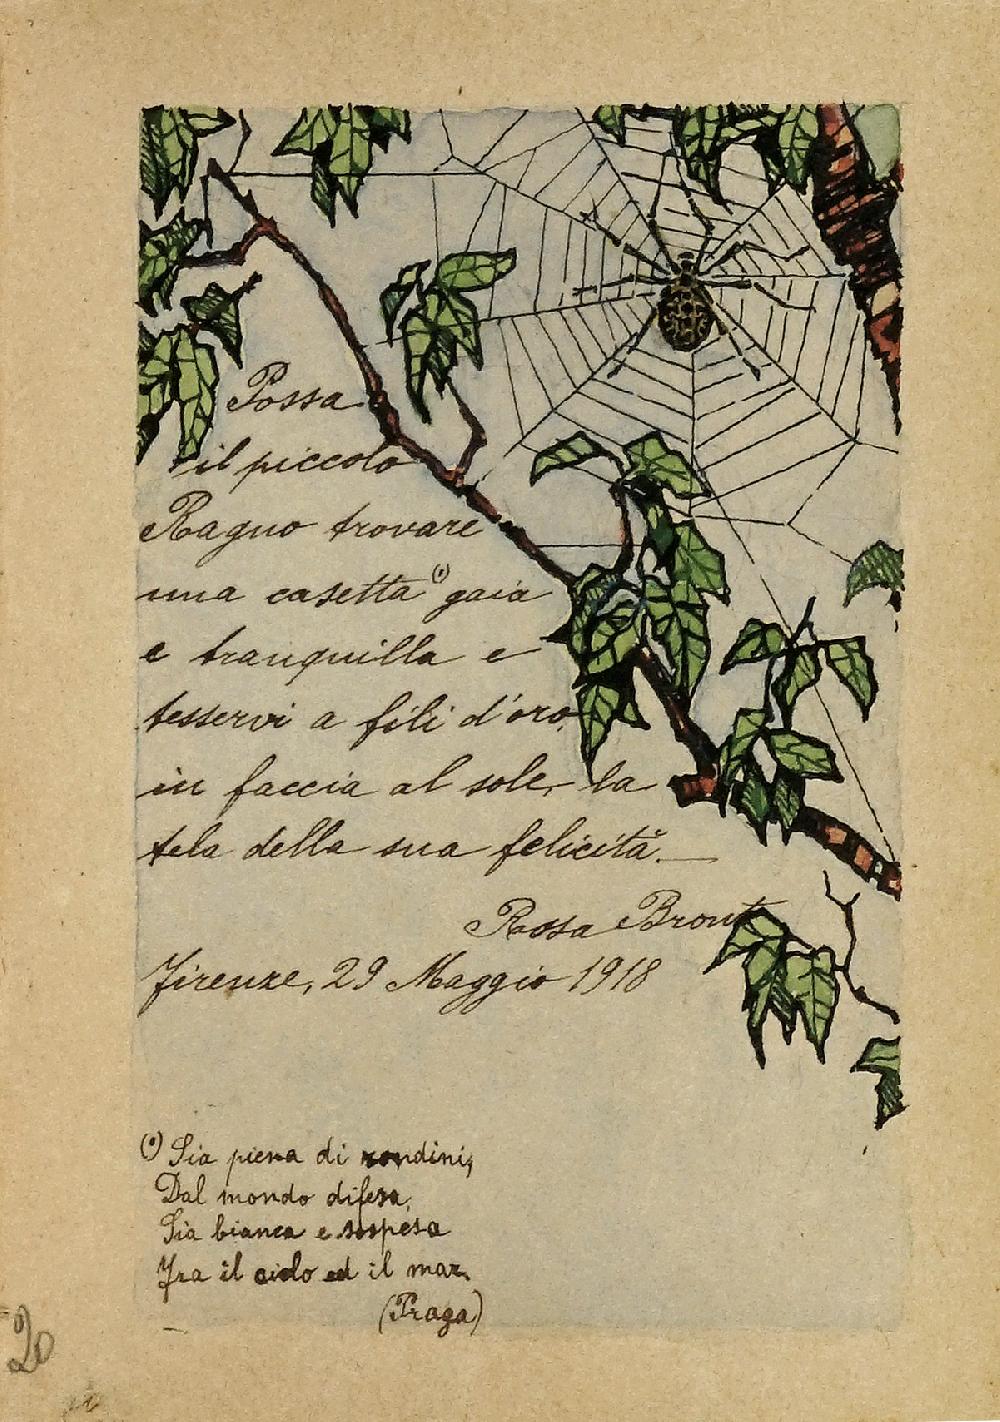 Possa
il piccolo
Ragno trovare
una casetta (1) gaia
e tranquilla e
tesservi a fili d'oro,
in faccia al sole, - la
tela della sua felicità. —
Rosa
Firenze, 29 Maggio 1918
(1) Sia piena di rondini,
Dal mondo difesa,
Sia bianca e sospesa
Fra il cielo ed il mar.
(Praga)
20